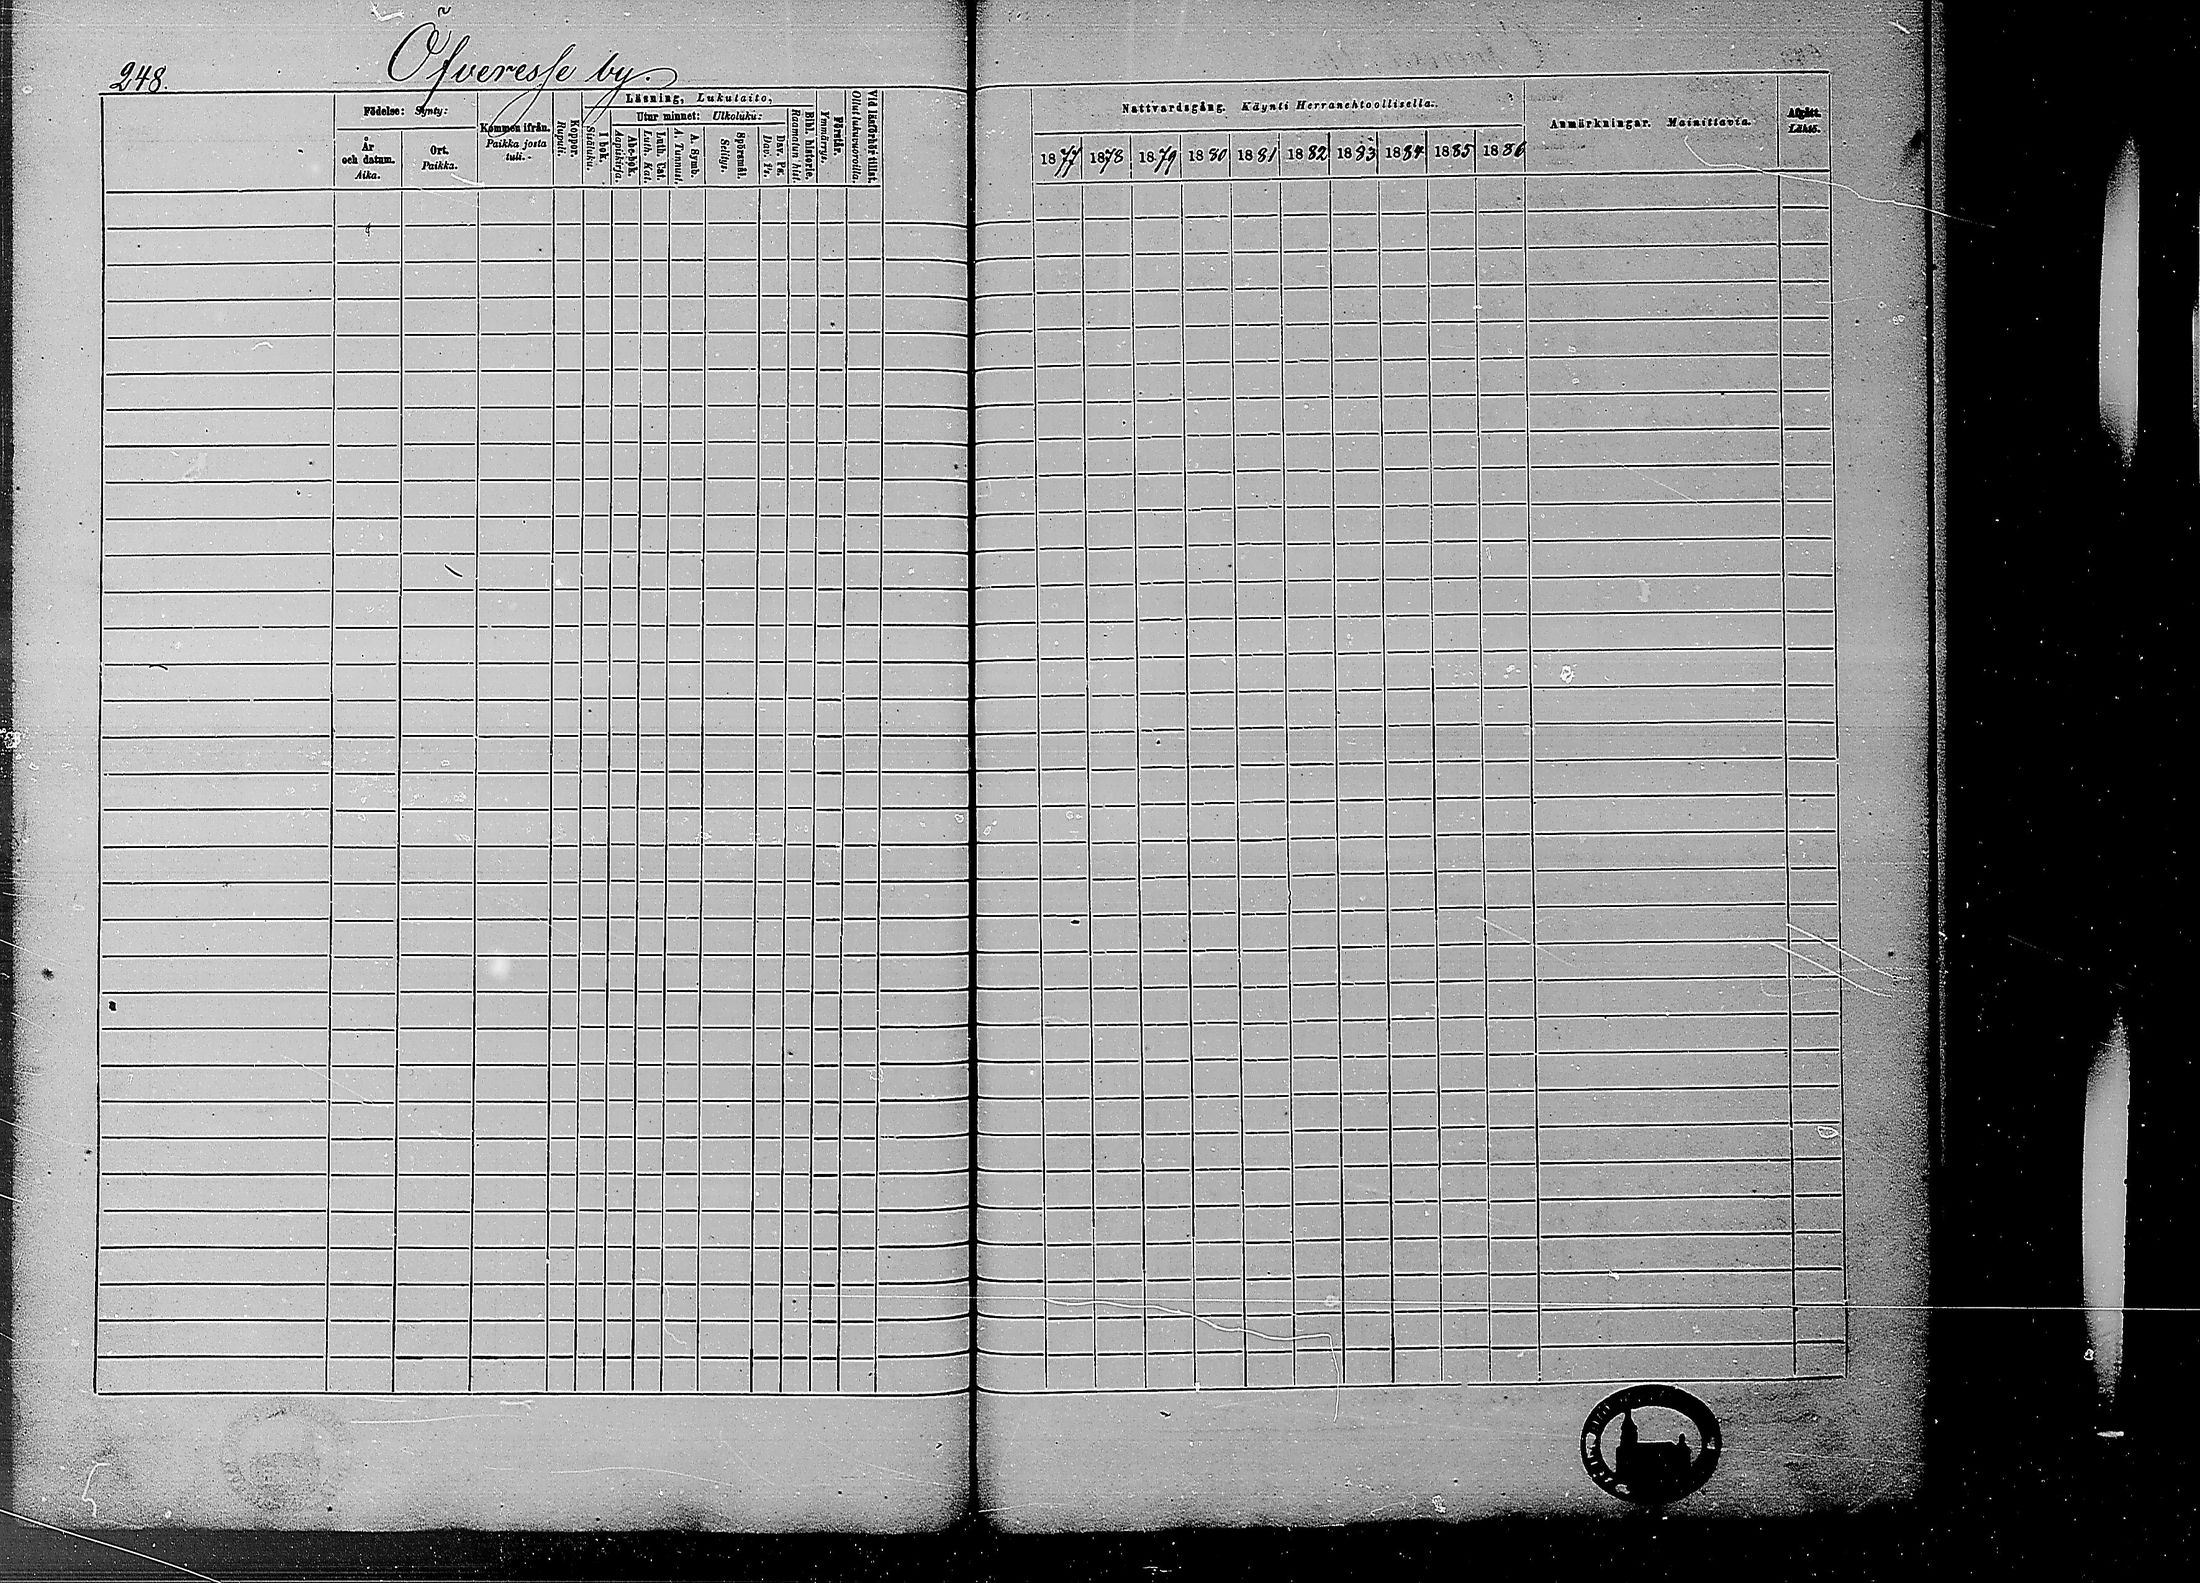 248.
Öfveresse by.
Födelse: Synty:
År och datum. Aika.
Ort. Paikka.
Kommen ifrån. Paikka josta tuli.
Koppor. Rupuli.
Läsning, Lukutaito,
I bok. Sisältuku.
Utur minnet: Ulkoluku:
Abc-bok. Aapiskirja.
Luth. Cat. Luth. Kat.
A. Symb. A. Tunnust.
Spörsmål. Selitys.
Dav. Ps. Dav. Ps.
Bibl. historie. Raamatun hist.
Förstår. Ymmärrys.
Vid läsförhör tillst. Ollut lukuvuoroilla.
Nattvardsgång. Käynti Herranehtoollisella.
1877 1878 1879 1880 1881 1882 1883 1884 1885 1886
Anmärkningar. Mainittavia.
Afgått. Lähtö.